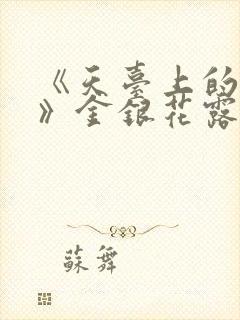 《天臺上的
》金銀花露
蘇舞